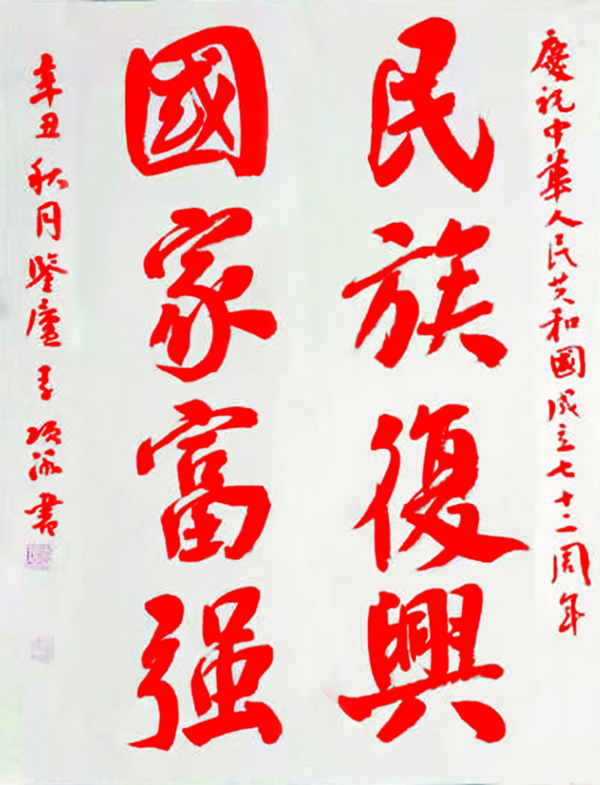 慶祝中華人民共和國成立七十二周年
民族復興
國家富强
辛丑秋月 書